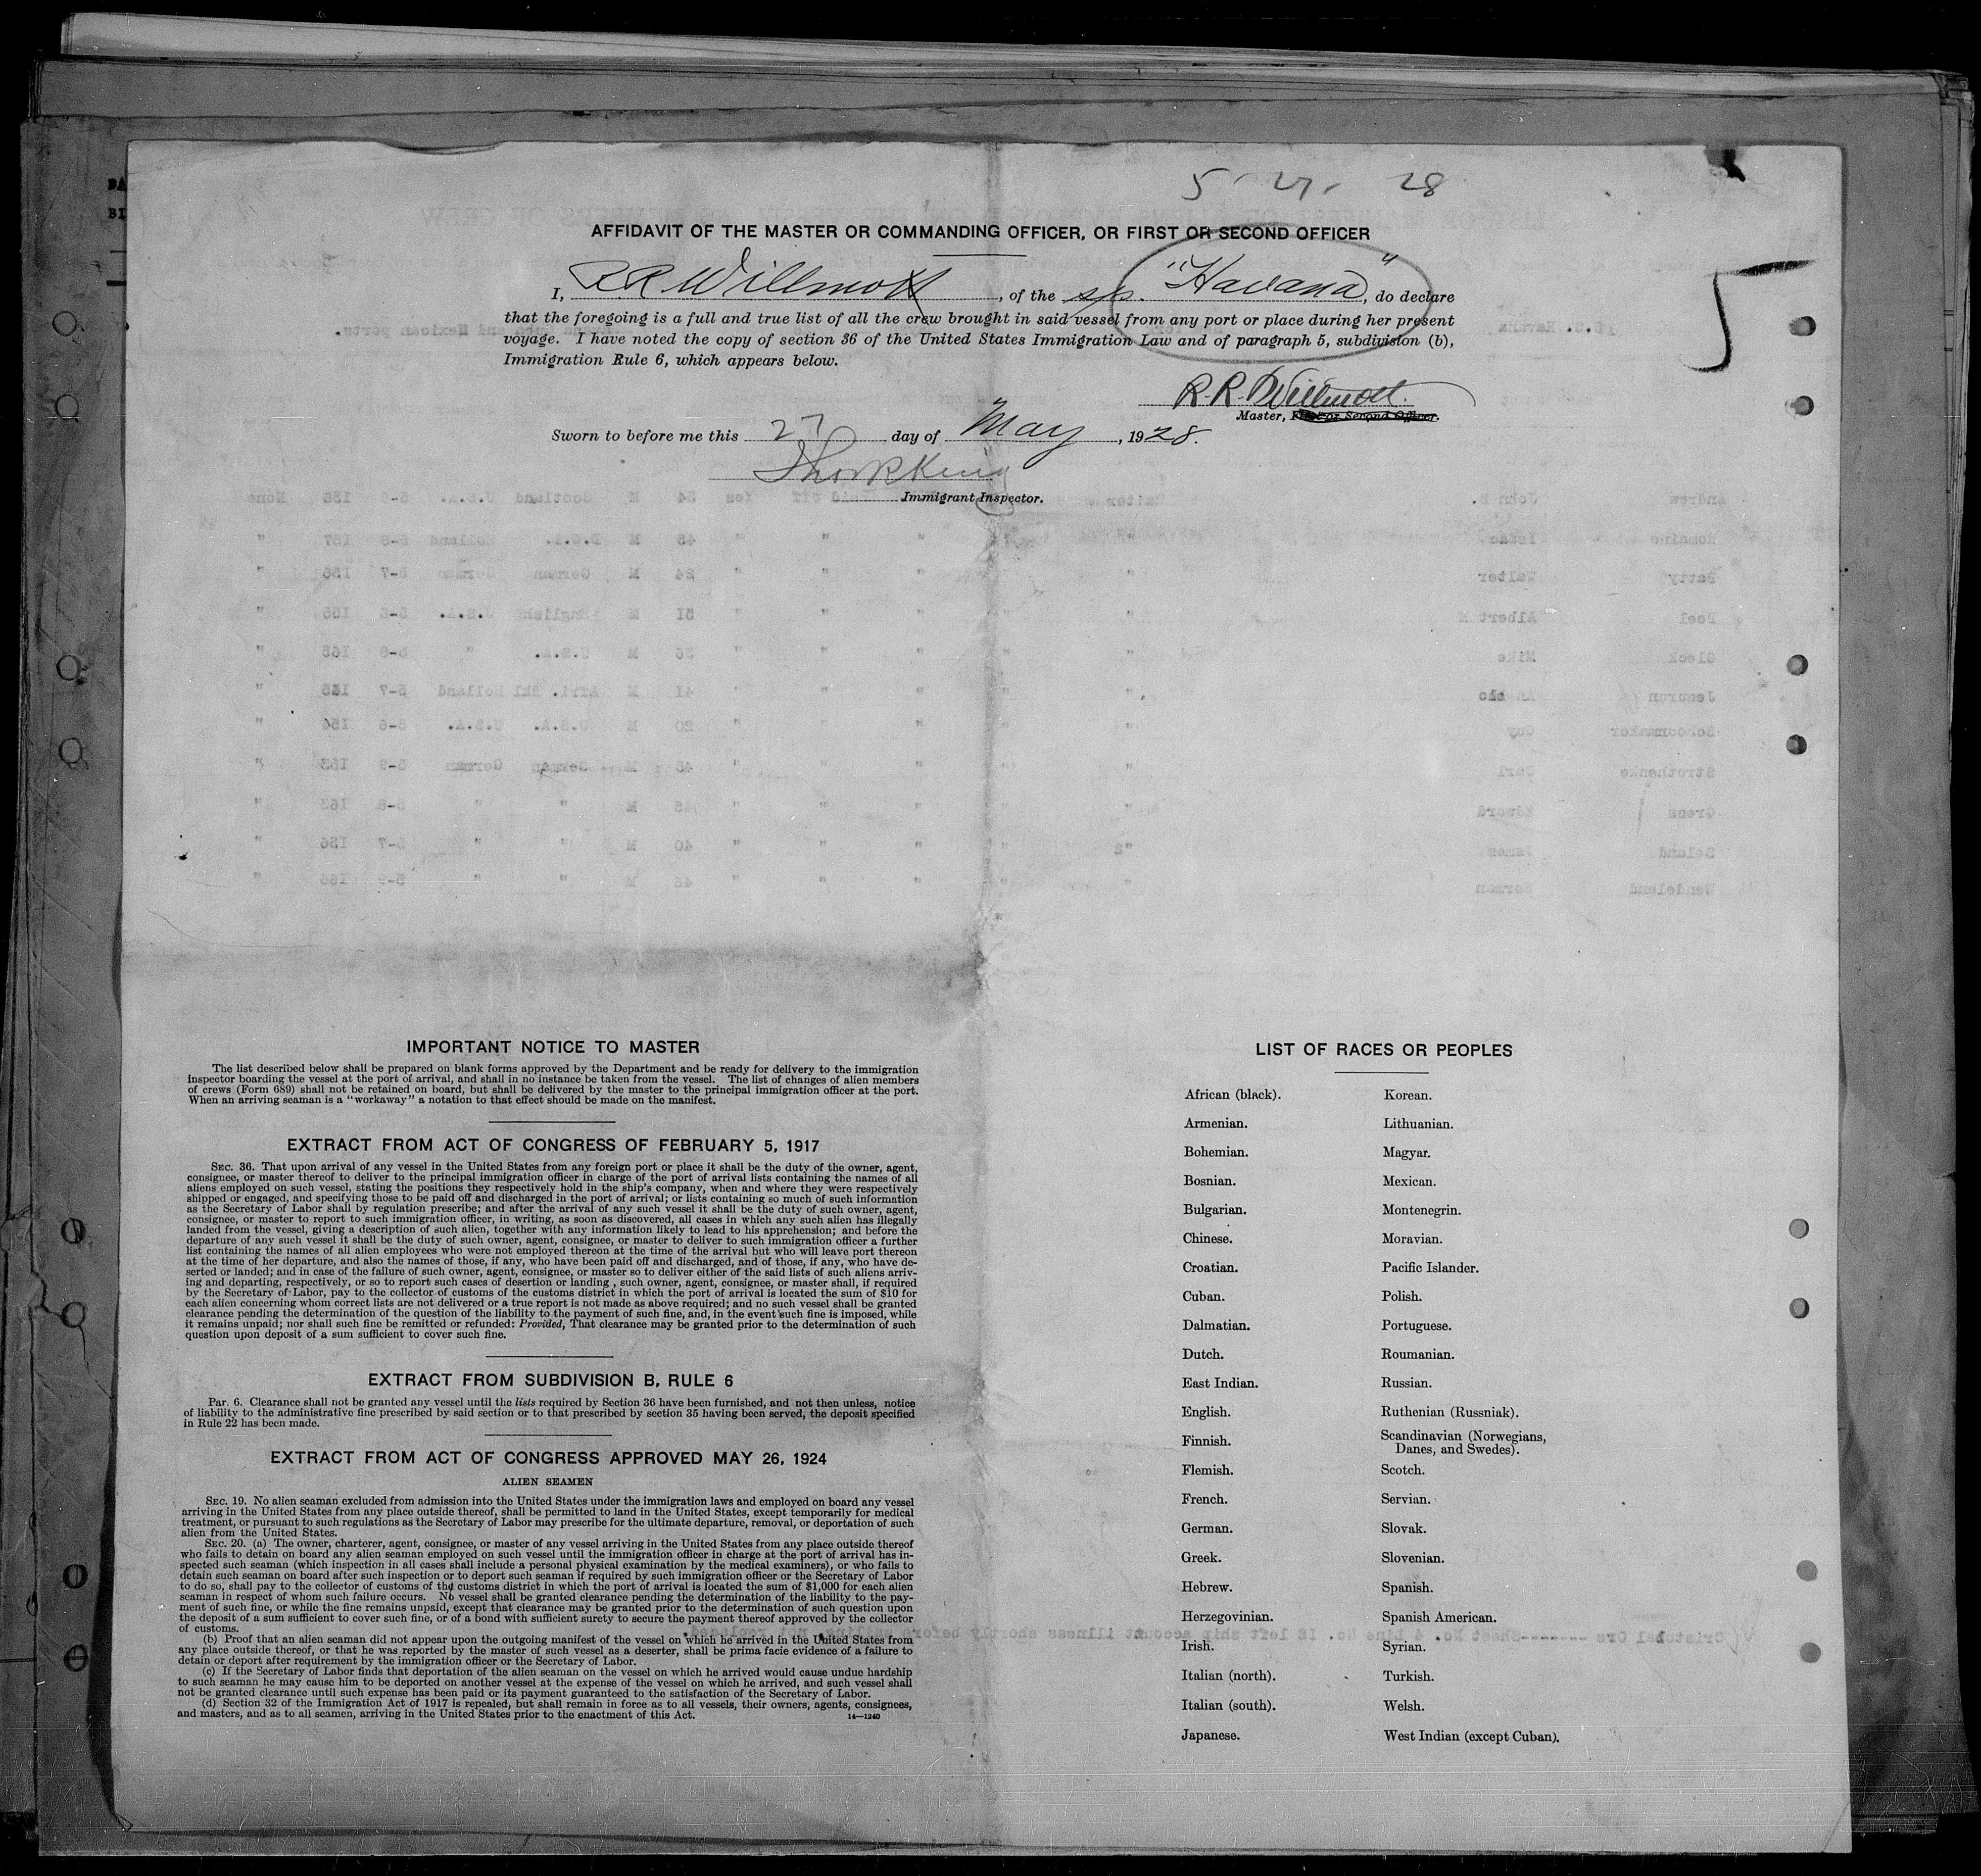 5 . 27 . 28
AFFIDAVIT OF THE MASTER OR COMMANDING OFFICER, OR FIRST OR SECOND OFFICER
I, R R Willmott, of the s/s. "Havana", do declare
that the foregoing is a full and true list of all the crew brought in said vessel from any port or place during her present
voyage. I have noted the copy of section 36 of the United States Immigration Law and of paragraph 5, subdivision (b),
Immigration Rule 6, which appears below.
5
R. R. Willmott.
Master, First or Second Officer.
Sworn to before me this 27 day of May, 1928.
Immigrant Inspector.
IMPORTANT NOTICE TO MASTER
The list described below shall be prepared on blank forms approved by the Department and be ready for delivery to the immigration
inspector boarding the vessel at the port of arrival, and shall in no instance be taken from the vessel. The list of changes of alien members
of crews (Form 689) shall not be retained on board, but shall be delivered by the master to the principal immigration officer at the port.
When an arriving seaman is a "workaway" a notation to that effect should be made on the manifest.
EXTRACT FROM ACT OF CONGRESS OF FEBRUARY 5, 1917
SEC. 36. That upon arrival of any vessel in the United States from any foreign port or place it shall be the duty of the owner, agent,
consignee, or master thereof to deliver to the principal immigration officer in charge of the port of arrival lists containing the names of all
aliens employed on such vessel, stating the positions they respectively hold in the ship's company, when and where they were respectively
shipped or engaged, and specifying those to be paid off and discharged in the port of arrival; or lists containing so much of such information
as the Secretary of Labor shall by regulation prescribe; and after the arrival of any such vessel it shall be the duty of such owner, agent,
consignee, or master to report to such immigration officer, in writing, as soon as discovered, all cases in which any such alien has illegally
landed from the vessel, giving a description of such alien, together with any information likely to lead to his apprehension; and before the
departure of any such vessel it shall be the duty of such owner, agent, consignee, or master to deliver to such immigration officer a further
list containing the names of all alien employees who were not employed thereon at the time of the arrival but who will leave port thereon
at the time of her departure, and also the names of those, if any, who have been paid off and discharged, and of those, if any, who have de-
serted or landed; and in case of the failure of such owner, agent, consignee, or master so to deliver either of the said lists of such aliens arriv-
ing and departing, respectively, or so to report such cases of desertion or landing, such owner, agent, consignee, or master shall, if required
by the Secretary of Labor, pay to the collector of customs of the customs district in which the port of arrival is located the sum of $10 for
each alien concerning whom correct lists are not delivered or a true report is not made as above required; and no such vessel shall be granted
clearance pending the determination of the question of the liability to the payment of such fine, and, in the event such fine is imposed, while
it remains unpaid; nor shall such fine be remitted or refunded: Provided, That clearance may be granted prior to the determination of such
question upon deposit of a sum sufficient to cover such fine.
EXTRACT FROM SUBDIVISION B, RULE 6
PAR. 6. Clearance shall not be granted any vessel until the lists required by Section 36 have been furnished, and not then unless, notice
of liability to the administrative fine prescribed by said section or to that prescribed by section 35 having been served, the deposit specified
in Rule 22 has been made.
EXTRACT FROM ACT OF CONGRESS APPROVED MAY 26, 1924
ALIEN SEAMEN
SEC. 19. No alien seaman excluded from admission into the United States under the immigration laws and employed on board any vessel
arriving in the United States from any place outside thereof, shall be permitted to land in the United States, except temporarily for medical
treatment, or pursuant to such regulations as the Secretary of Labor may prescribe for the ultimate departure, removal, or deportation of such
alien from the United States.
SEC. 20. (a) The owner, charterer, agent, consignee, or master of any vessel arriving in the United States from any place outside thereof
who fails to detain on board any alien seaman employed on such vessel until the immigration officer in charge at the port of arrival has in-
spected such seaman (which inspection in all cases shall include a personal physical examination by the medical examiners), or who fails to
detain such seaman on board after such inspection or to deport such seaman if required by such immigration officer or the Secretary of Labor
to do so, shall pay to the collector of customs of the customs district in which the port of arrival is located the sum of $1,000 for each alien
seaman in respect of whom such failure occurs. No vessel shall be granted clearance pending the determination of the liability to the pay-
ment of such fine, or while the fine remains unpaid, except that clearance may be granted prior to the determination of such question upon
the deposit of a sum sufficient to cover such fine, or of a bond with sufficient surety to secure the payment thereof approved by the collector
of customs.
(b) Proof that an alien seaman did not appear upon the outgoing manifest of the vessel on which he arrived in the United States from
any place outside thereof, or that he was reported by the master of such vessel as a deserter, shall be prima facie evidence of a failure to
detain or deport after requirement by the immigration officer or the Secretary of Labor.
(c) If the Secretary of Labor finds that deportation of the alien seaman on the vessel on which he arrived would cause undue hardship
to such seaman he may cause him to be deported on another vessel at the expense of the vessel on which he arrived, and such vessel shall
not be granted clearance until such expense has been paid or its payment guaranteed to the satisfaction of the Secretary of Labor.
(d) Section 32 of the Immigration Act of 1917 is repealed, but shall remain in force as to all vessels, their owners, agents, consignees,
and masters, and as to all seamen, arriving in the United States prior to the enactment of this Act.
14—1240
LIST OF RACES OR PEOPLES
African (black). Korean.
Armenian. Lithuanian.
Bohemian. Magyar.
Bosnian. Mexican.
Bulgarian. Montenegrin.
Chinese. Moravian.
Croatian. Pacific Islander.
Cuban. Polish.
Dalmatian. Portuguese.
Dutch. Roumanian.
East Indian. Russian.
English. Ruthenian (Russniak).
Finnish. Scandinavian (Norwegians,
Danes, and Swedes).
Flemish. Scotch.
French. Servian.
German. Slovak.
Greek. Slovenian.
Hebrew. Spanish.
Herzegovinian. Spanish American.
Irish. Syrian.
Italian (north). Turkish.
Italian (south). Welsh.
Japanese. West Indian (except Cuban).